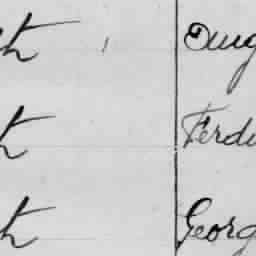 th Aug
th Ferdi
th Georg